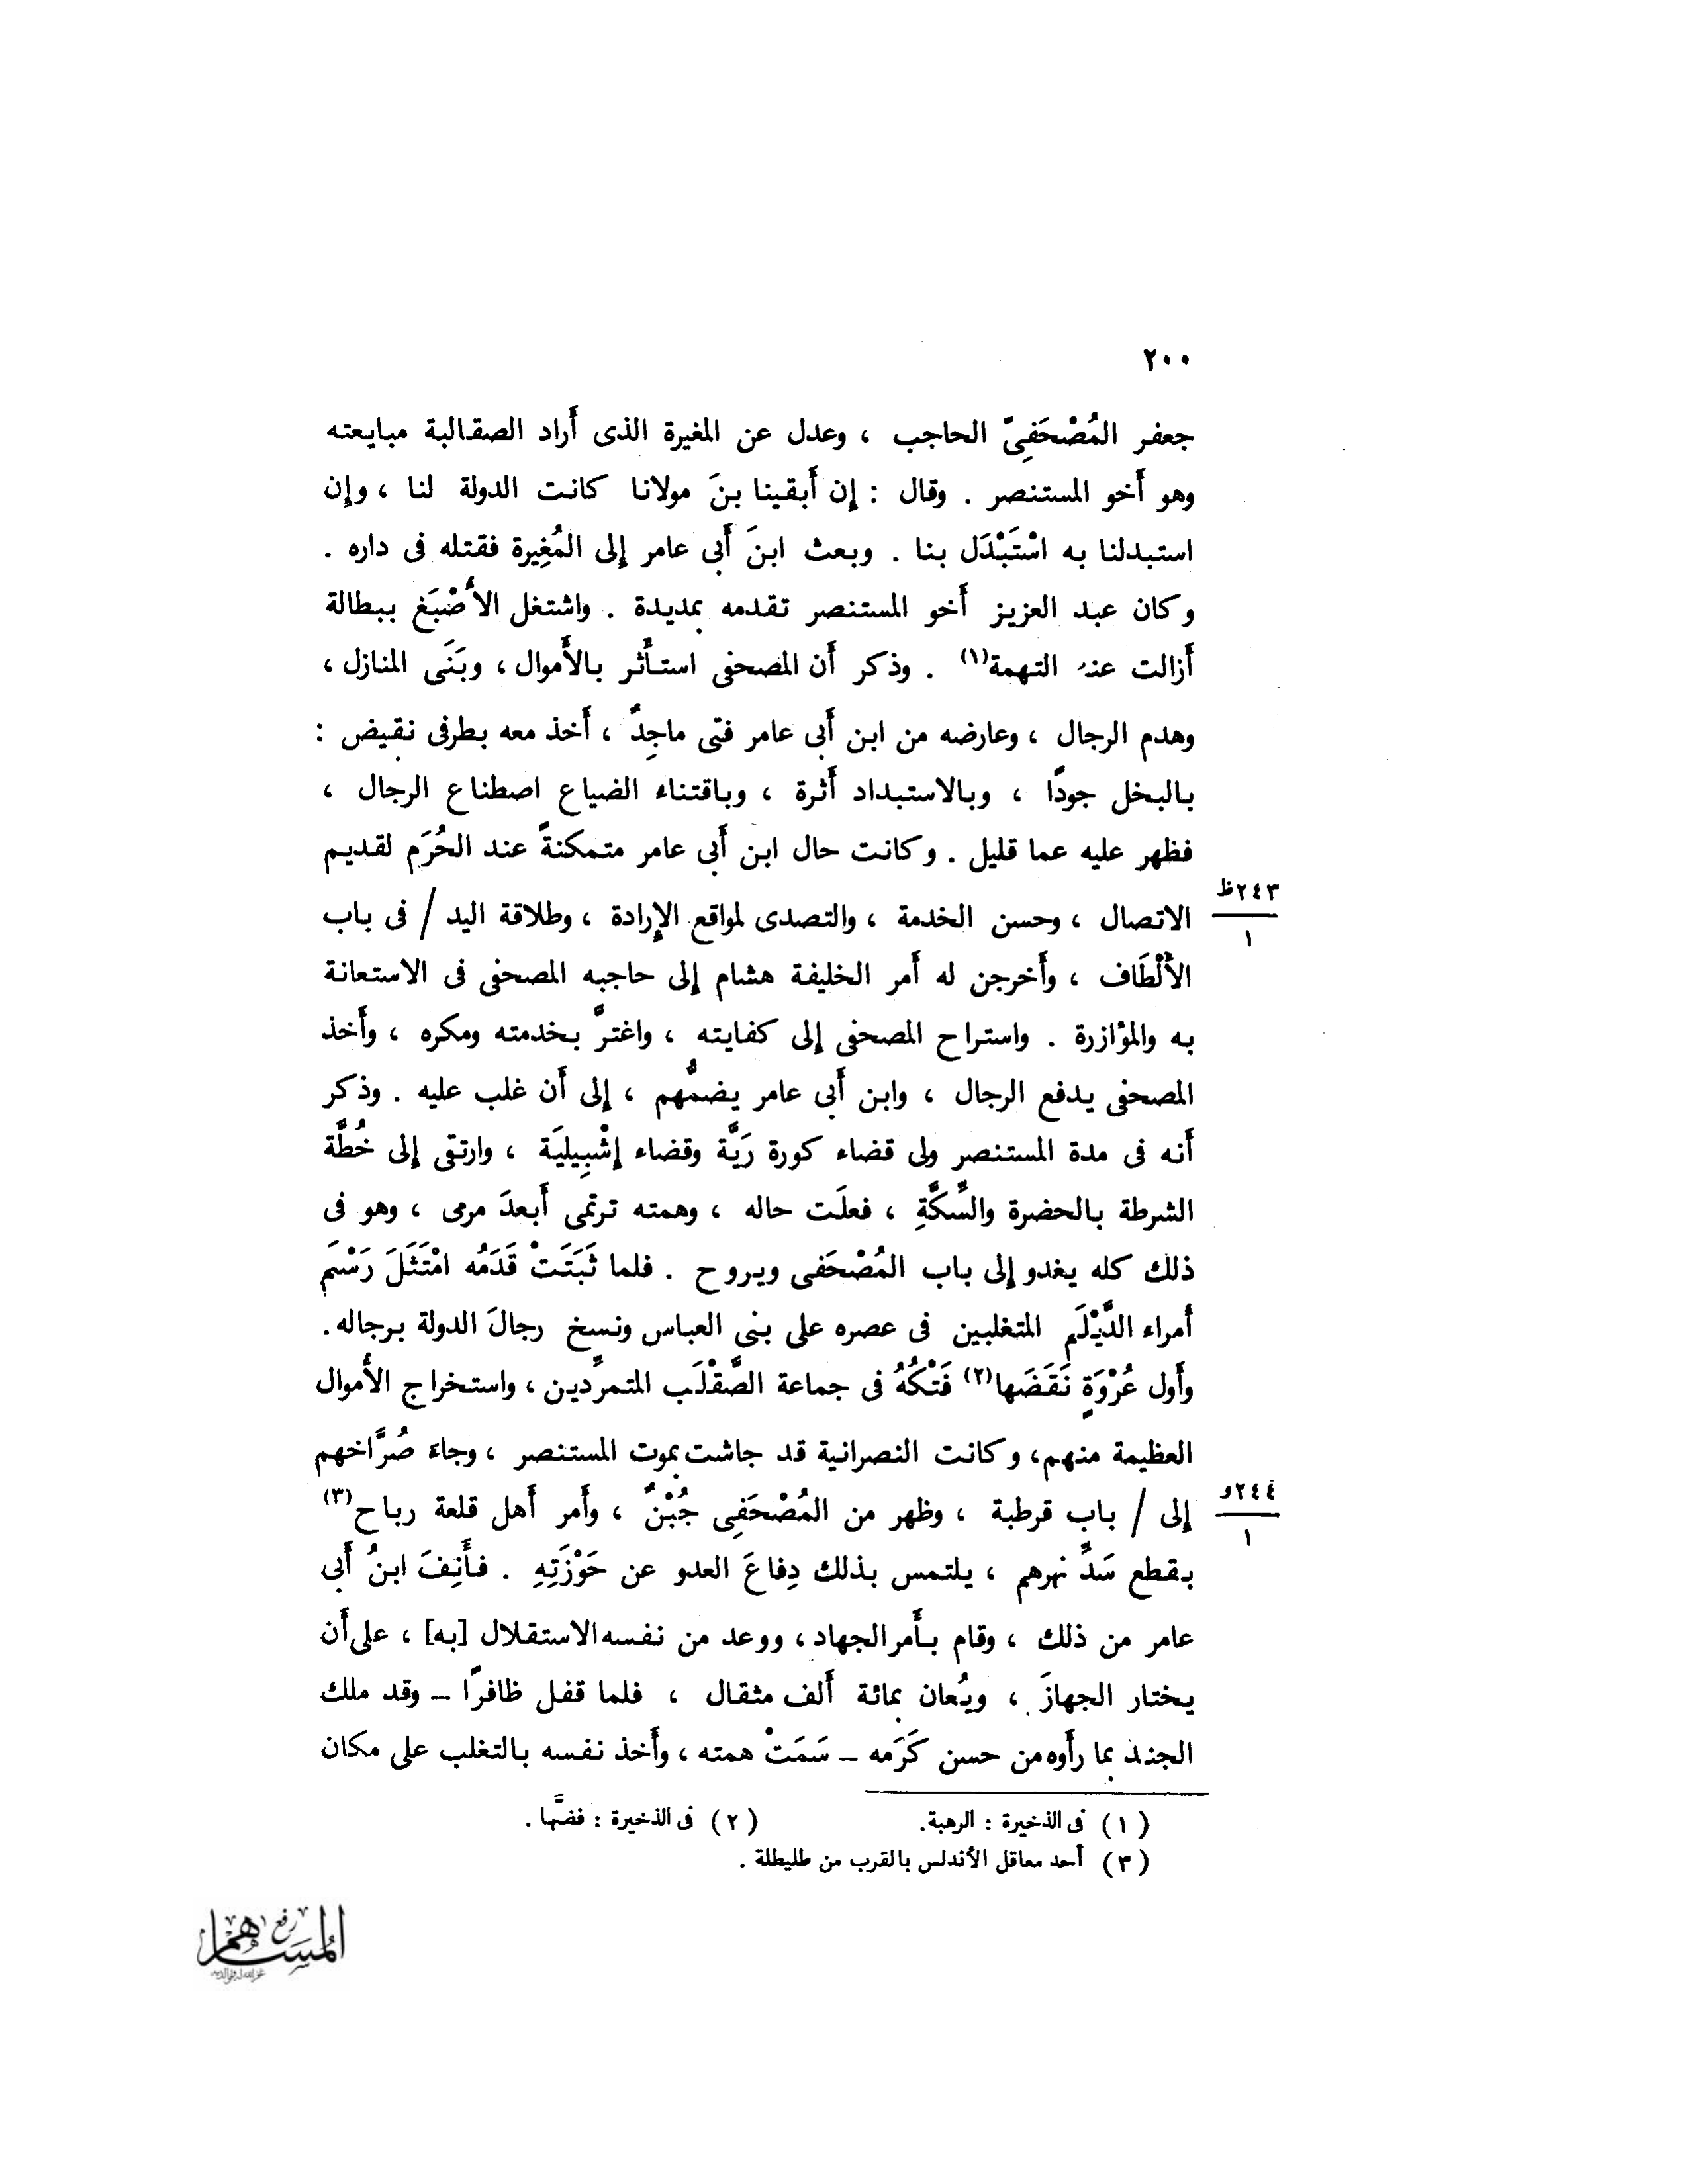 ٢٠٠
جعفر المُصْحَفِىّ الحاجب ، وعدل عن المغيرة الذى أَراد الصقالبة مبايعته
وهو أَخو المستنصر . وقال : إِن أَبقينا بنَ مولانا كانت الدولة لنا ، وإِن
استبدلنا به اسْتَبْدَل بنا . وبعث ابنَ أَبى عامر إِلى المُغِيرة فقتله فى داره .
وكان عبد العزيز أَخو المستنصر تقدمه بمديدة . واشتغل الأَصْبَغ ببطالة
أَزالت عنه التهمة(١) . وذكر أَن المصحفى استأْثر بالأَموال ، وبَنَى المنازل ،
وهدم الرجال ، وعارضه من ابن أَبى عامر فتى ماجِدٌ ، أَخذ معه بطرفى نقيض :
بالبخل جودًا ، وبالاستبداد أَثرة ، وباقتناء الضياع اصطناع الرجال ،
فظهر عليه عما قليل . وكانت حال ابن أَبى عامر متمكنةً عند الحُرَم لقديم
٢٤٣ظ
١
الاتصال ، وحسن الخدمة ، والتصدى لمواقع الإِرادة ، وطلاقة اليد / فى باب
الأَلْطَاف ، وأَخرجن له أَمر الخليفة هشام إِلى حاجبه المصحفى فى الاستعانة
به والمؤازرة . واستراح المصحفى إِلى كفايته ، واغترَّ بخدمته ومكره ، وأَخذ
المصحفى يدفع الرجال ، وابن أَبى عامر يضمُّهم ، إِلى أَن غلب عليه . وذكر
أَنه فى مدة المستنصر ولى قضاء كورة رَيَّة وقضاء إِشْبِيليَة ، وارتقى إِلى خُطَّة
الشرطة بالحضرة والسِّكَّةِ ، فعلَت حاله ، وهمته ترتمى أَبعدَ مرمى ، وهو فى
ذلك كله يغدو إِلى باب المُصْحَفى ويروح . فلما ثَبَتَتْ قَدَمُه امْتَثَلَ رَسْمَ
أُمراء الدَّيْلَمِ المتغلبين فى عصره على بنى العباس ونسخ رجالَ الدولة برجاله .
وأَول عُرْوَةٍ نَقَضَها(٢) فَتْكُهُ فى جماعة الصَّقْلَب المتمرِّدين ، واستخراج الأَموال
العظيمة منهم ، وكانت النصرانية قد جاشت بموت المستنصر ، وجاءَ صُرَّاخهم
٢٤٤و
١
إِلى / باب قرطبة ، وظهر من المُصْحَفِى جُبْنٌ ، وأَمر أَهل قلعة رباح(٣)
بقطع سَدِّ نهرهم ، يلتمس بذلك دِفاعَ العدو عن حَوْزَتِهِ . فأَنِفَ ابنُ أَبى
عامر من ذلك ، وقام بأَمر الجهاد ، ووعد من نفسه الاستقلال [به] ، على أَن
يختار الجهازَ ، ويُعان بمائة أَلف مثقال ، فلما قفل ظافرًا – وقد ملك
الجند بما رأَوه من حسن كَرَمه – سَمَتْ همته ، وأَخذ نفسه بالتغلب على مكان
(١) فى الذخيرة : الرهبة. (٢) فى الذخيرة : فضَّها .
(٣) أحد معاقل الأندلس بالقرب من طليطلة .